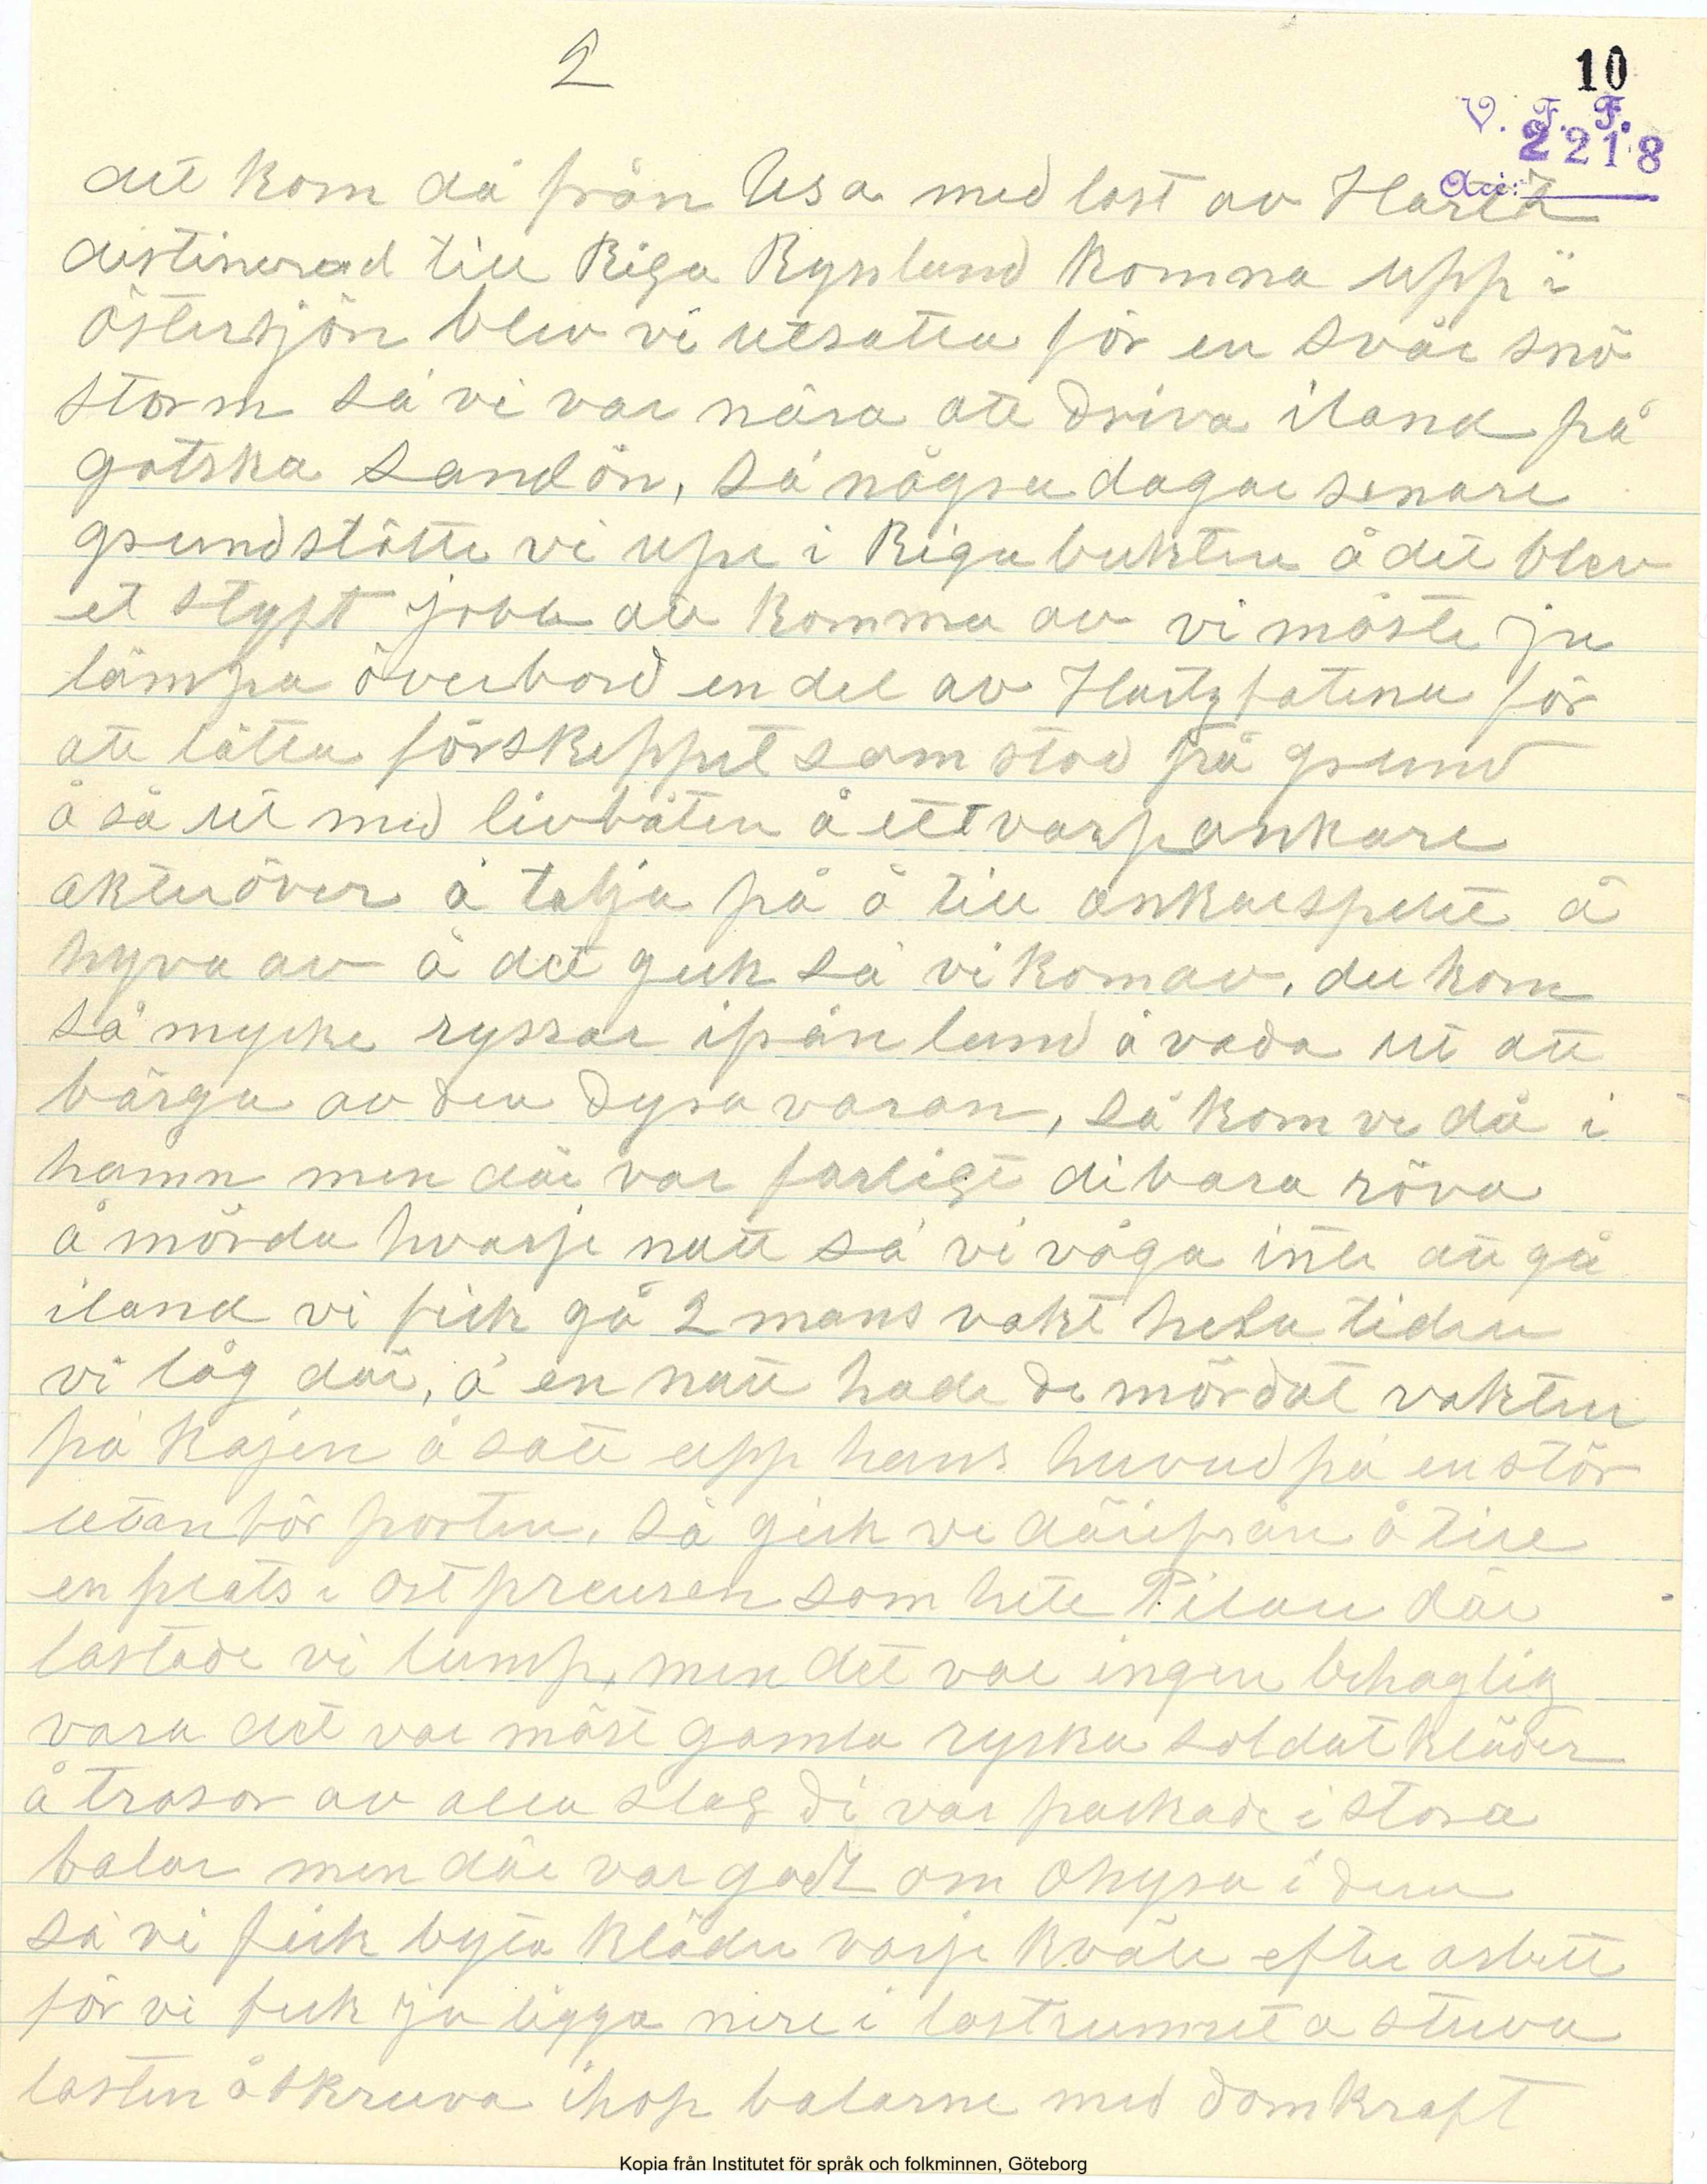 2
10
V. F. F.
2218
Acc:
det kom då från Usa med last av Hartz
distinerad till Riga Ryssland komna upp i
östersjön blev vi utsatta för en svår snö
storm så vi var nära att driva iland på
gotska Sandön, så några dagar senare
grundstötte vi uppe i Rigabukten å det blev
et styft jobb att komma av vi måste ju
lämpa överbord en del av Hartzfatena för
att lätta förskeppet som stod på grund
å så ut med livbåten å ett varpankare
akteröver å talja på å till ankarspelet å
hyva av å det gick så vi kom av, det kom
så mycke ryssar ifrån land å vada ut att
bärga av den dyra varan, så kom vi då i
hamn men där var farligt di bara röva
å mörda hvarje natt så vi våga inte att gå
iland vi fick gå 2 mans vakt hela tiden
vi låg där, å en natt hade de mördat vakten
på kajen å satt upp hans huvud på en stör
utanför porten, så gick vi därifrån å till
en plats i ostpreusen som hete Pilau där
lastade vi lump, men det var ingen behaglig
vara det var mäst gamla ryska soldatkläder
å trasor av alla slag di var packade i stora
balar men där var godt om ohyra i dem
så vi fick byta kläder varje kväll efter arbett
för vi fick ju ligga nere i lastrummet å stuva
lasten å skruva ihop balarne med domkraft
Kopia från Institutet för språk och folkminnen, Göteborg